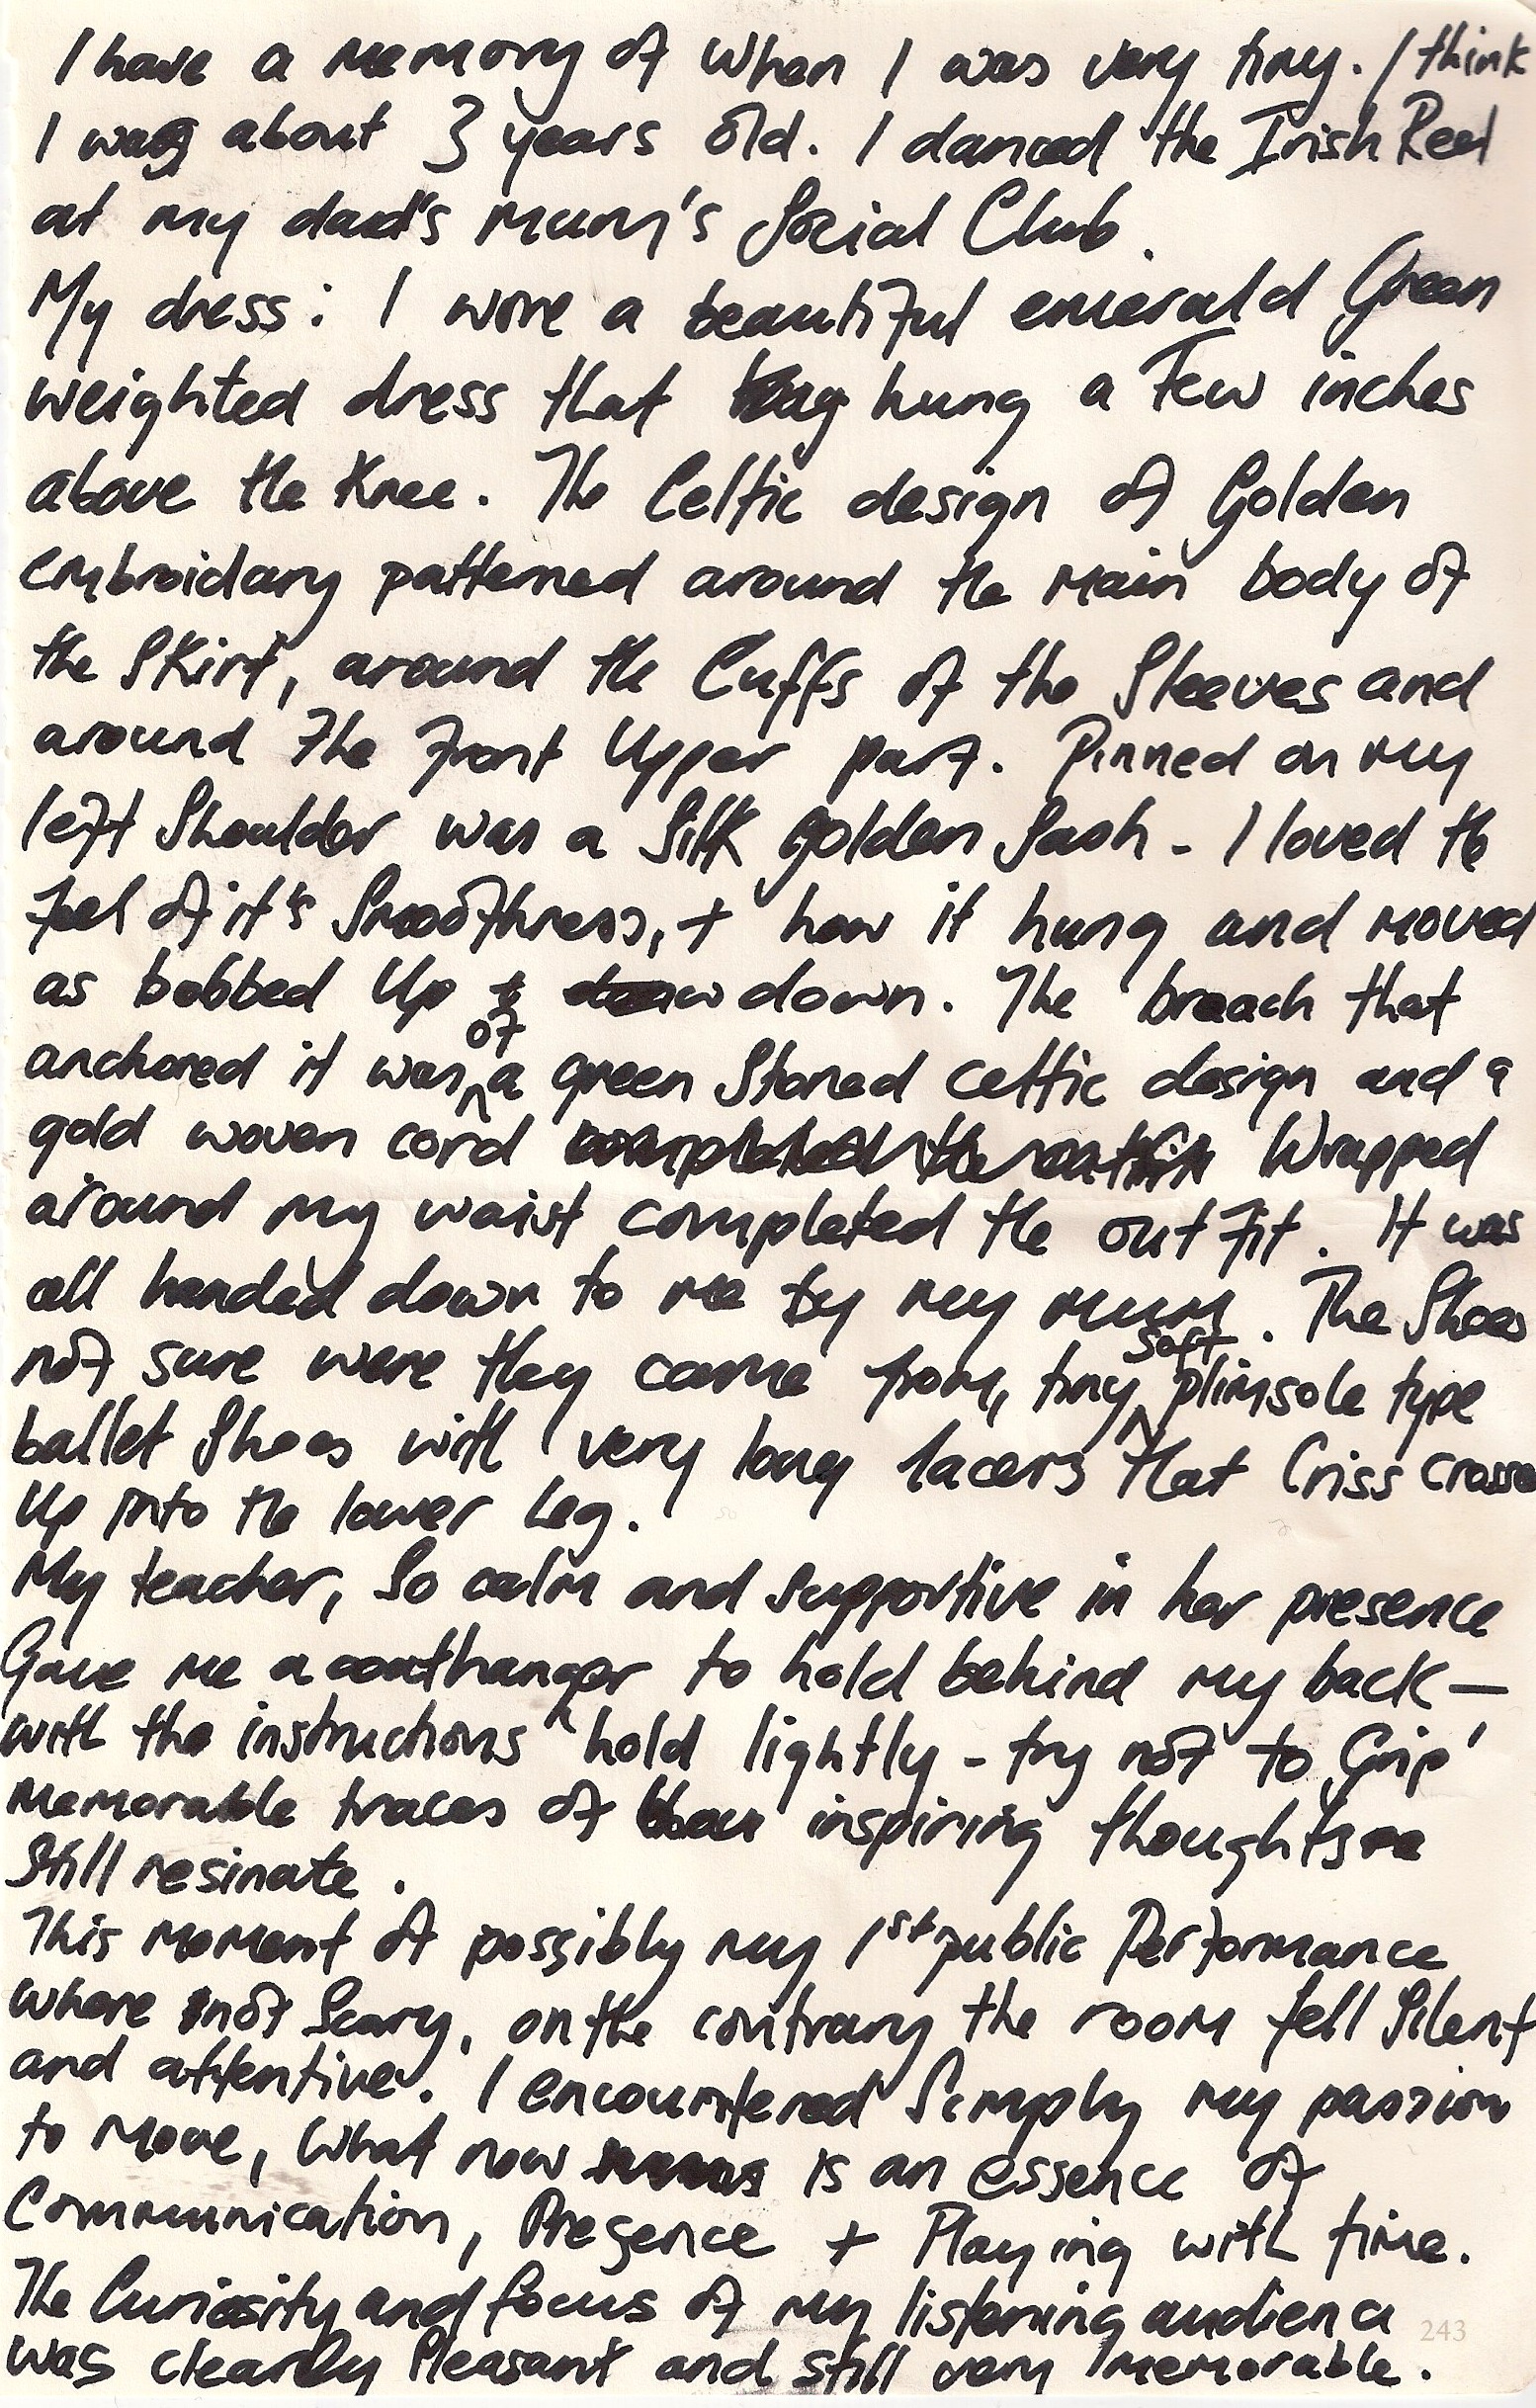 I have a memory of when I was very tiny. I think
I was about 3 years old. I danced the Irish Reel
at my dad's mum's Social Club.
My dress: I wore a beautiful emerald Green
weighted dress that hung a Few inches
above the Knee. The Celtic design of Golden
embroidary patterned around the Main body of
the Skirt, around the Cuffs of the Sleeves and
around The Front Upper part. Pinned on my
left Shoulder was a Silk golden Sash - I loved the
Feel of it's Smoothness, + how it hung and moved
as bobbed Up + down. The breach that
anchored it was of a green Stoned celtic design and a
gold woven cord Wrapped
around my waist completed the out Fit. It was
all handed down to me by my mum. The Shoes
not sure were they came from, tiny soft plimsole type
ballet Shoes with very long lacers that Criss crosse
Up into the lower Leg.
My teacher, So calm and supportive in her presence
Gave me a coathanger to hold behind my back —
with the instructions "hold lightly - try not to Grip'
Memorable traces of inspiring thoughts
Still resinate.
This Moment of possibly my 1st public Performance
where not Scary, on the contrary the room fell Silent
and attentive. I encountered Simply my passion
to Move, What now is an essence of
Communication, Presence + Playing with time.
The Curiosity and focus of my listening audience
was clearly Pleasant and still very memorable.
243